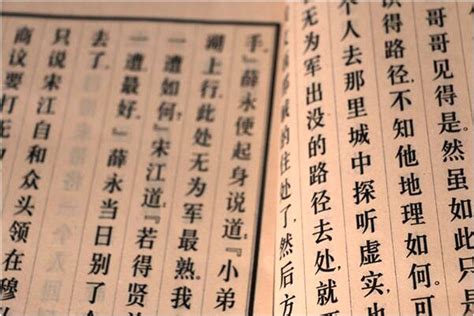 哥哥见得是。然虽如此，只
识得路径，不知他地理如何。可
个人去那里城中探听虚实，也
无为军出没的路径去处，就要
贼的住处了，然后方
手。』薛永便起身说道：『小弟
湖上行，此处无为军最熟。我
一遭如何？』宋江道：『若得贤
一遭最好。』薛永当日别了
去了。
只说宋江自和众头领在穆
商议要打无